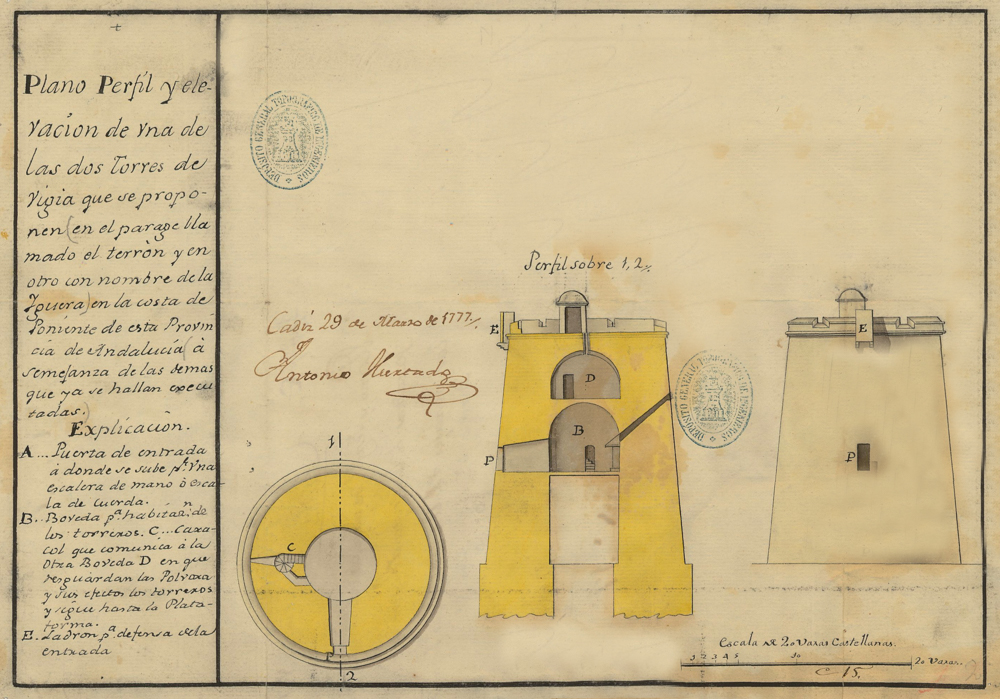 Plano Perfil y ele-
vacion de vna de
las dos Torres de
vigia que se propo-
nen (en el parage lla
mado el terròn y en
otro con nombre de la
Yguera) en la costa de
Poniente de esta Provin
cia de Andalucia (à
semejanza de las demas
que ya se hallan execu
tadas.)
Explicacion.
A ... Puerta de entrada
à donde se sube pr. vna
escalera de mano ò esca-
la de cuerda.
B.. Boveda pa. habitan. de
los torreros. C... Caxa-
col que comunica à la
Otra Boveda D en que
resguardan las Polvora
y sus efectos los torreros
y sigue hasta la Plata-
forma.
E. Ladron pa. defensa dela
entrada
DEPOSITO GENERAL TOPOGRAFICO DE INGENIEROS
Cadiz 29 de Marzo de 1777
Antonio Hurtado
Perfil sobre 1, 2
E
D
B
P
E
P
DEPOSITO GENERAL TOPOGRAFICO DE INGENIEROS
1
C
2
Escala de 20 Varas Castellanas.
1 2 3 4 5 10 20 Varas.
C. 15.